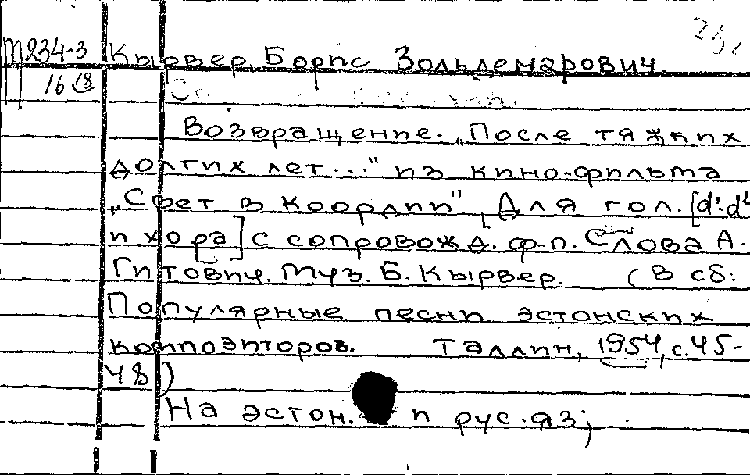 М234-3 Кырвер Борис Зольдемарович
16
Возвращение. „После тяжких
долгих лет..." из кино-фильма
„Свет в Коорди", [Для гол. [d¹-d²
и хора] с сопровожд. ф-п. Слова А.
Гитович. Муз. Б. Кырвер. (В сб:
Популярные песни эстонских
композиторов. Таллин, 1954, с. 45-
48)
На эстон. и рус. яз;